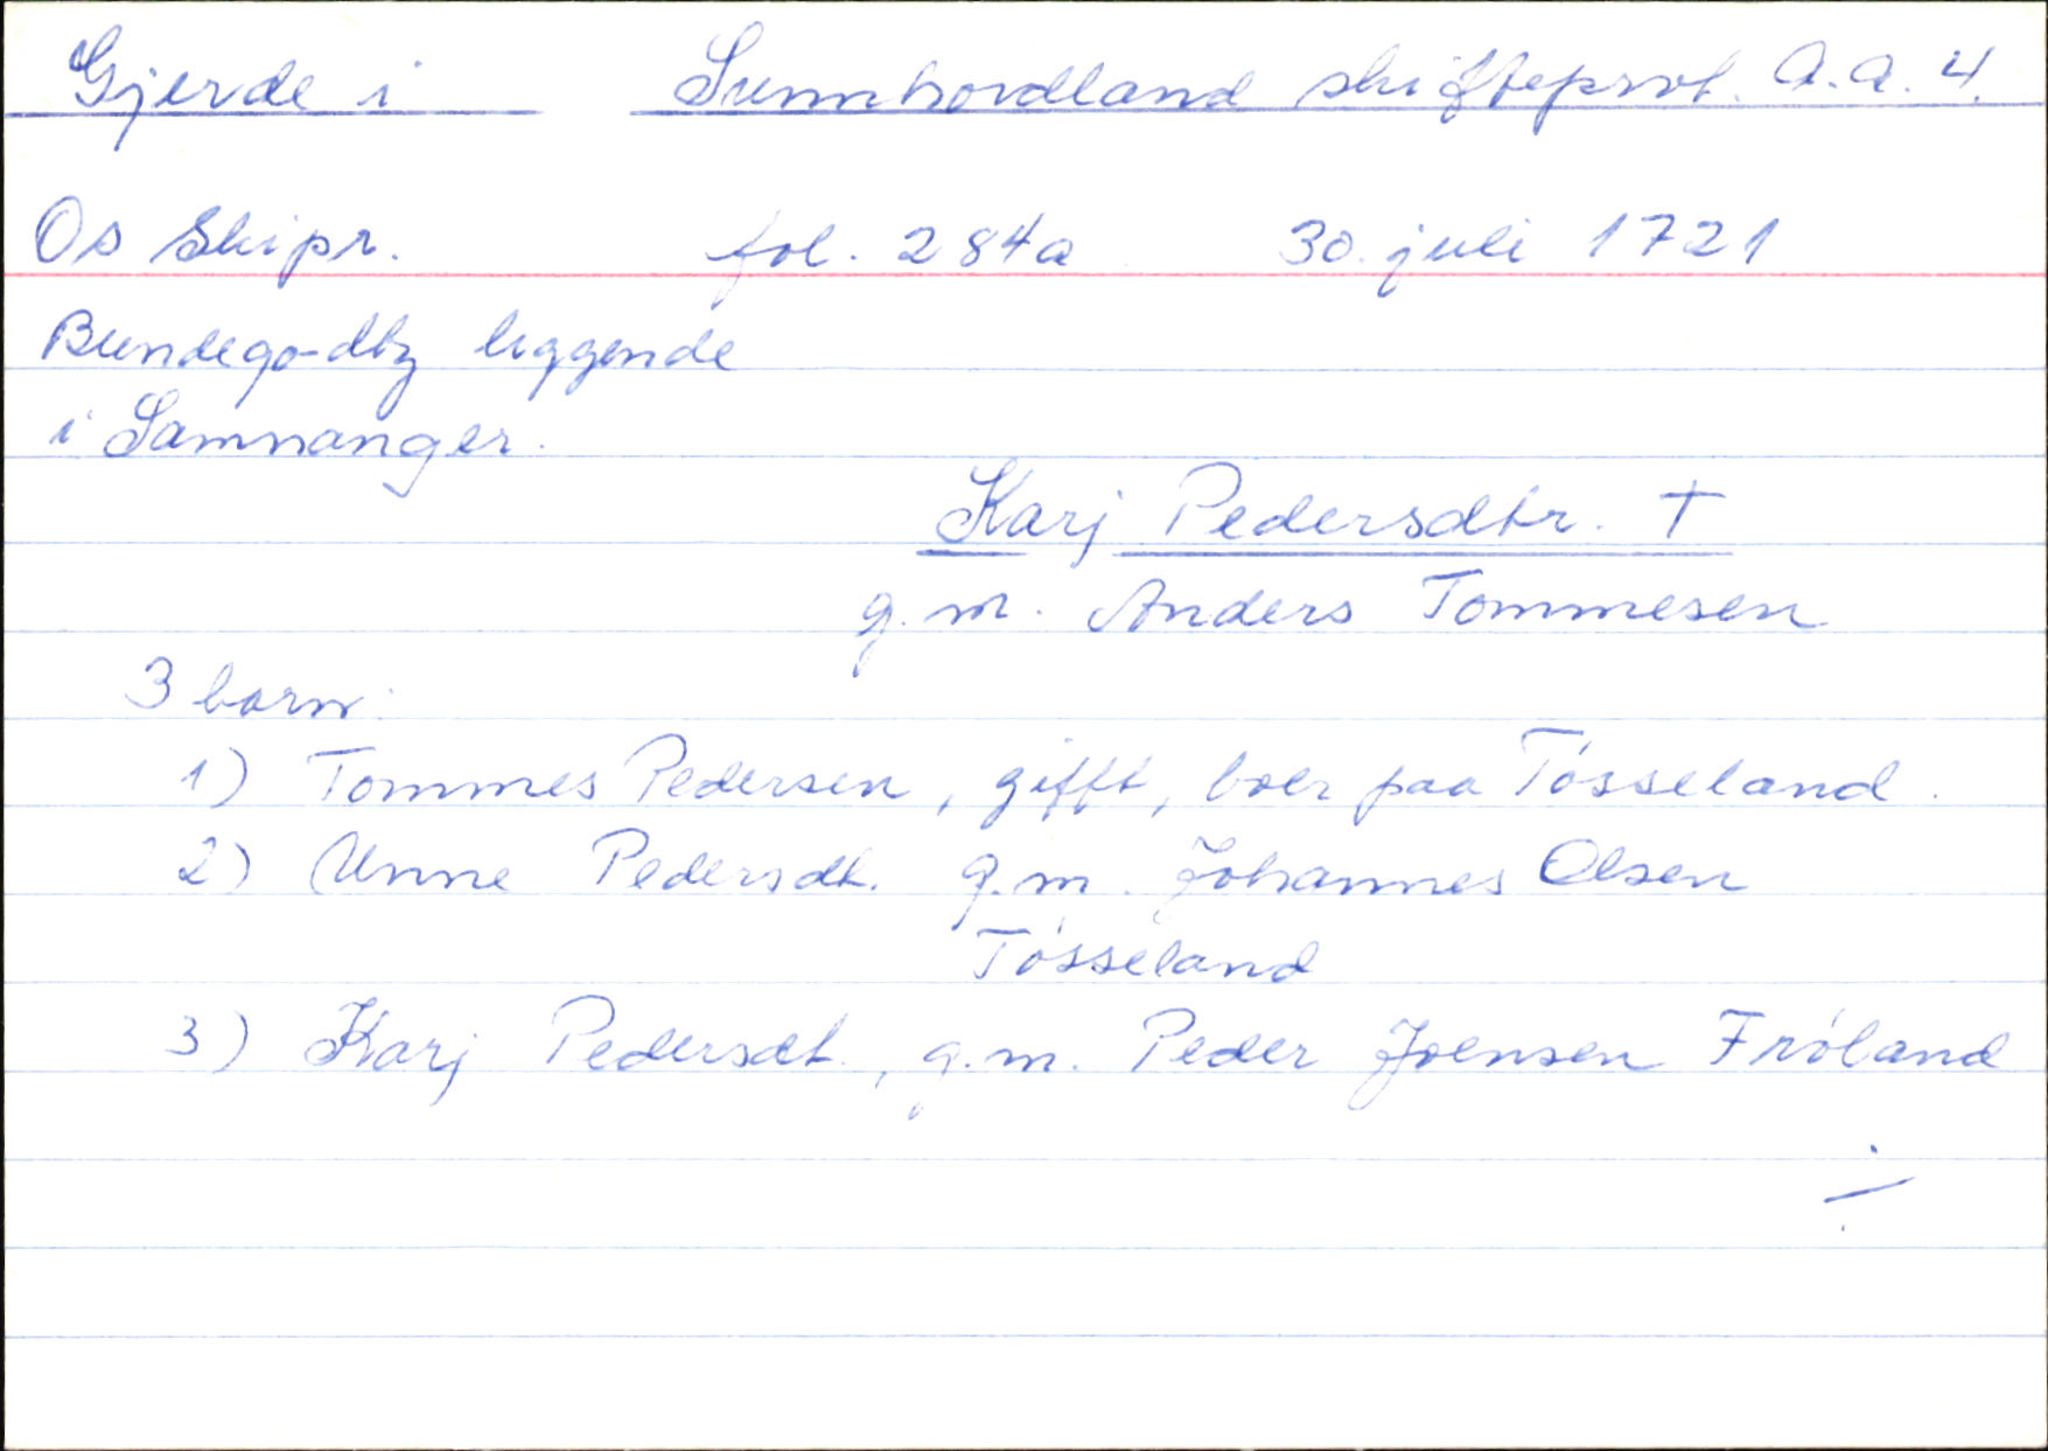 Gjerde i Sunnhordland skifteprot. A.a. 4.
Os Skipr. fol. 284a 30. juli 1721
Bundego-dtz liggende
i Samnanger.
Karj Pedersdtr. †
g.m. Anders Tommesen
3 born:
1) Tommes Pedersen, gifft, boer paa Tósseland.
2) Unne Pedersdt. g.m. Johannes Olsen
Tósseland
3) Karj Pedersdt., g.m. Peder Joensen Fróland
÷